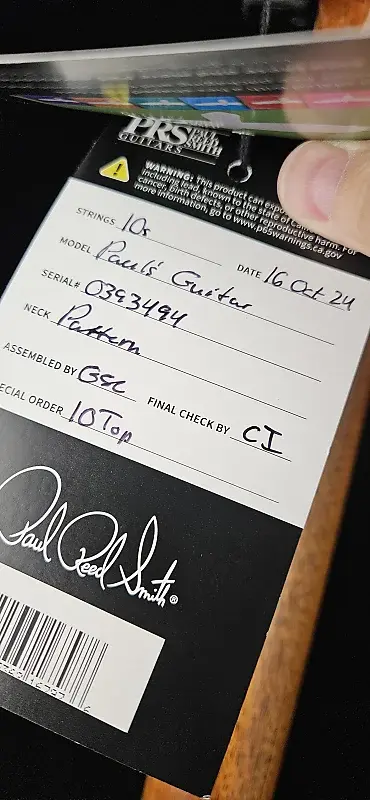 PRS PAUL REED SMITH
GUITARS
WARNING: This product can expos
including lead, known to the state of Calif
cancer, birth defects, or other reproductive harm. For
more information, go to www.p65warnings.ca.gov
STRINGS 10s DATE 16 Oct 24
MODEL Paul's Guitar
SERIAL# 0393494
NECK Pattern
ASSEMBLED BY GSC FINAL CHECK BY CI
ECIAL ORDER 10 Top
Paul Reed Smith®